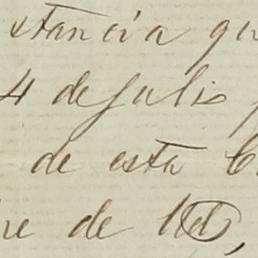 stancia qu
4 de Julio p
de esta C
re de Ud,